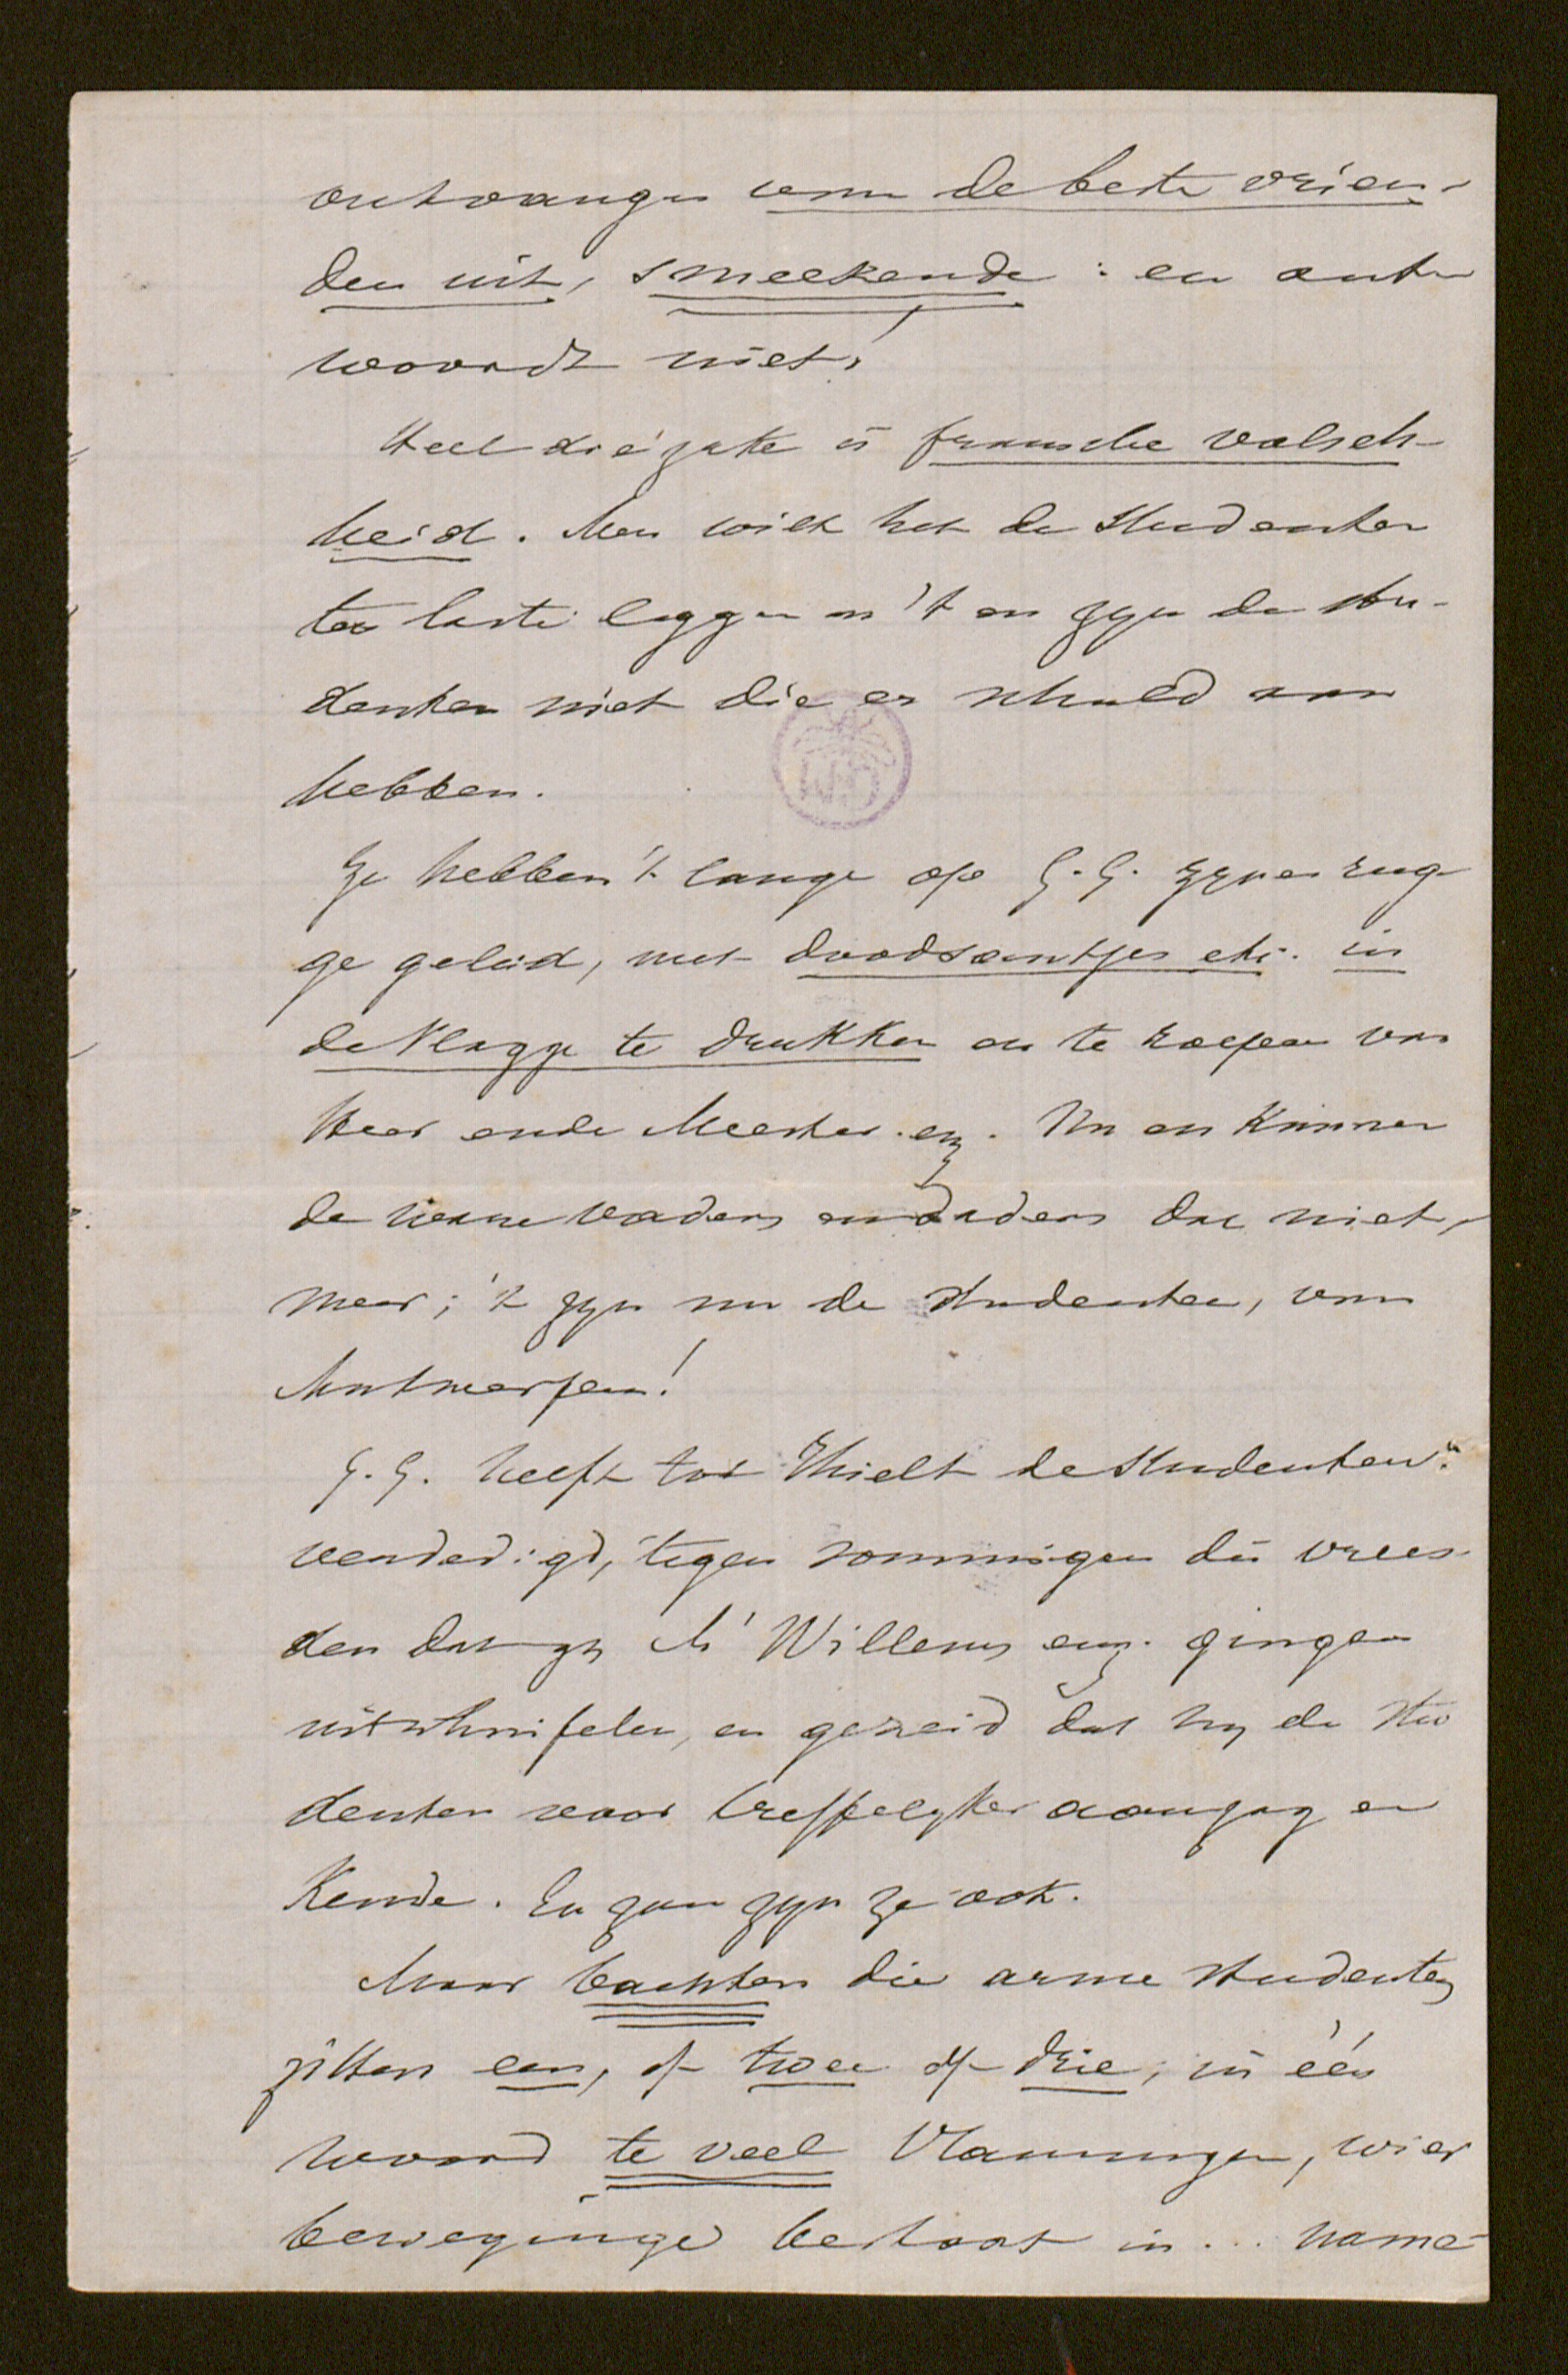 ontvangen van de beste vrien-
den uit, smeekende: en ant-
woordt niet!
Heel die zake is fransche valsch-
heid. Men wilt het de Studenten
ten laste leggen en 't en zyn de stu-
denten niet die er schuld aan
hebben.
Ze hebben 't lange op G.G. zynen rug-
ge geleid, met doodsantjes etc. in
de Vlagge te drukken en te roepen van
Heer ende Meester. enz. Nu en kunnen
de vaders dat niet
meer; 't zyn nu de Studenten, van
Antwerpen!
G.G. heeft tot Thielt de Studenten
verdedigd, tegen sommigen die vrees-
den dat zy Mr Willems enz. gingen
uitschuifelen, en gezeid dat hy de stu
denten voor treffelyker aanzag en
Kende. En zyn ze ook.
Maar bachten die arme studenten
zitten een, of twee of drie, in één
woord te veel Vlamingen, wier
beweginge bestaat in... name-